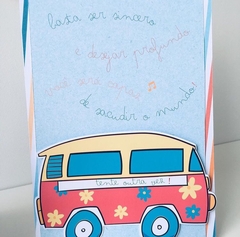 basta ser sincero
e desejar profundo
você será capaz
de sacudir o mundo!
tente outra vez!